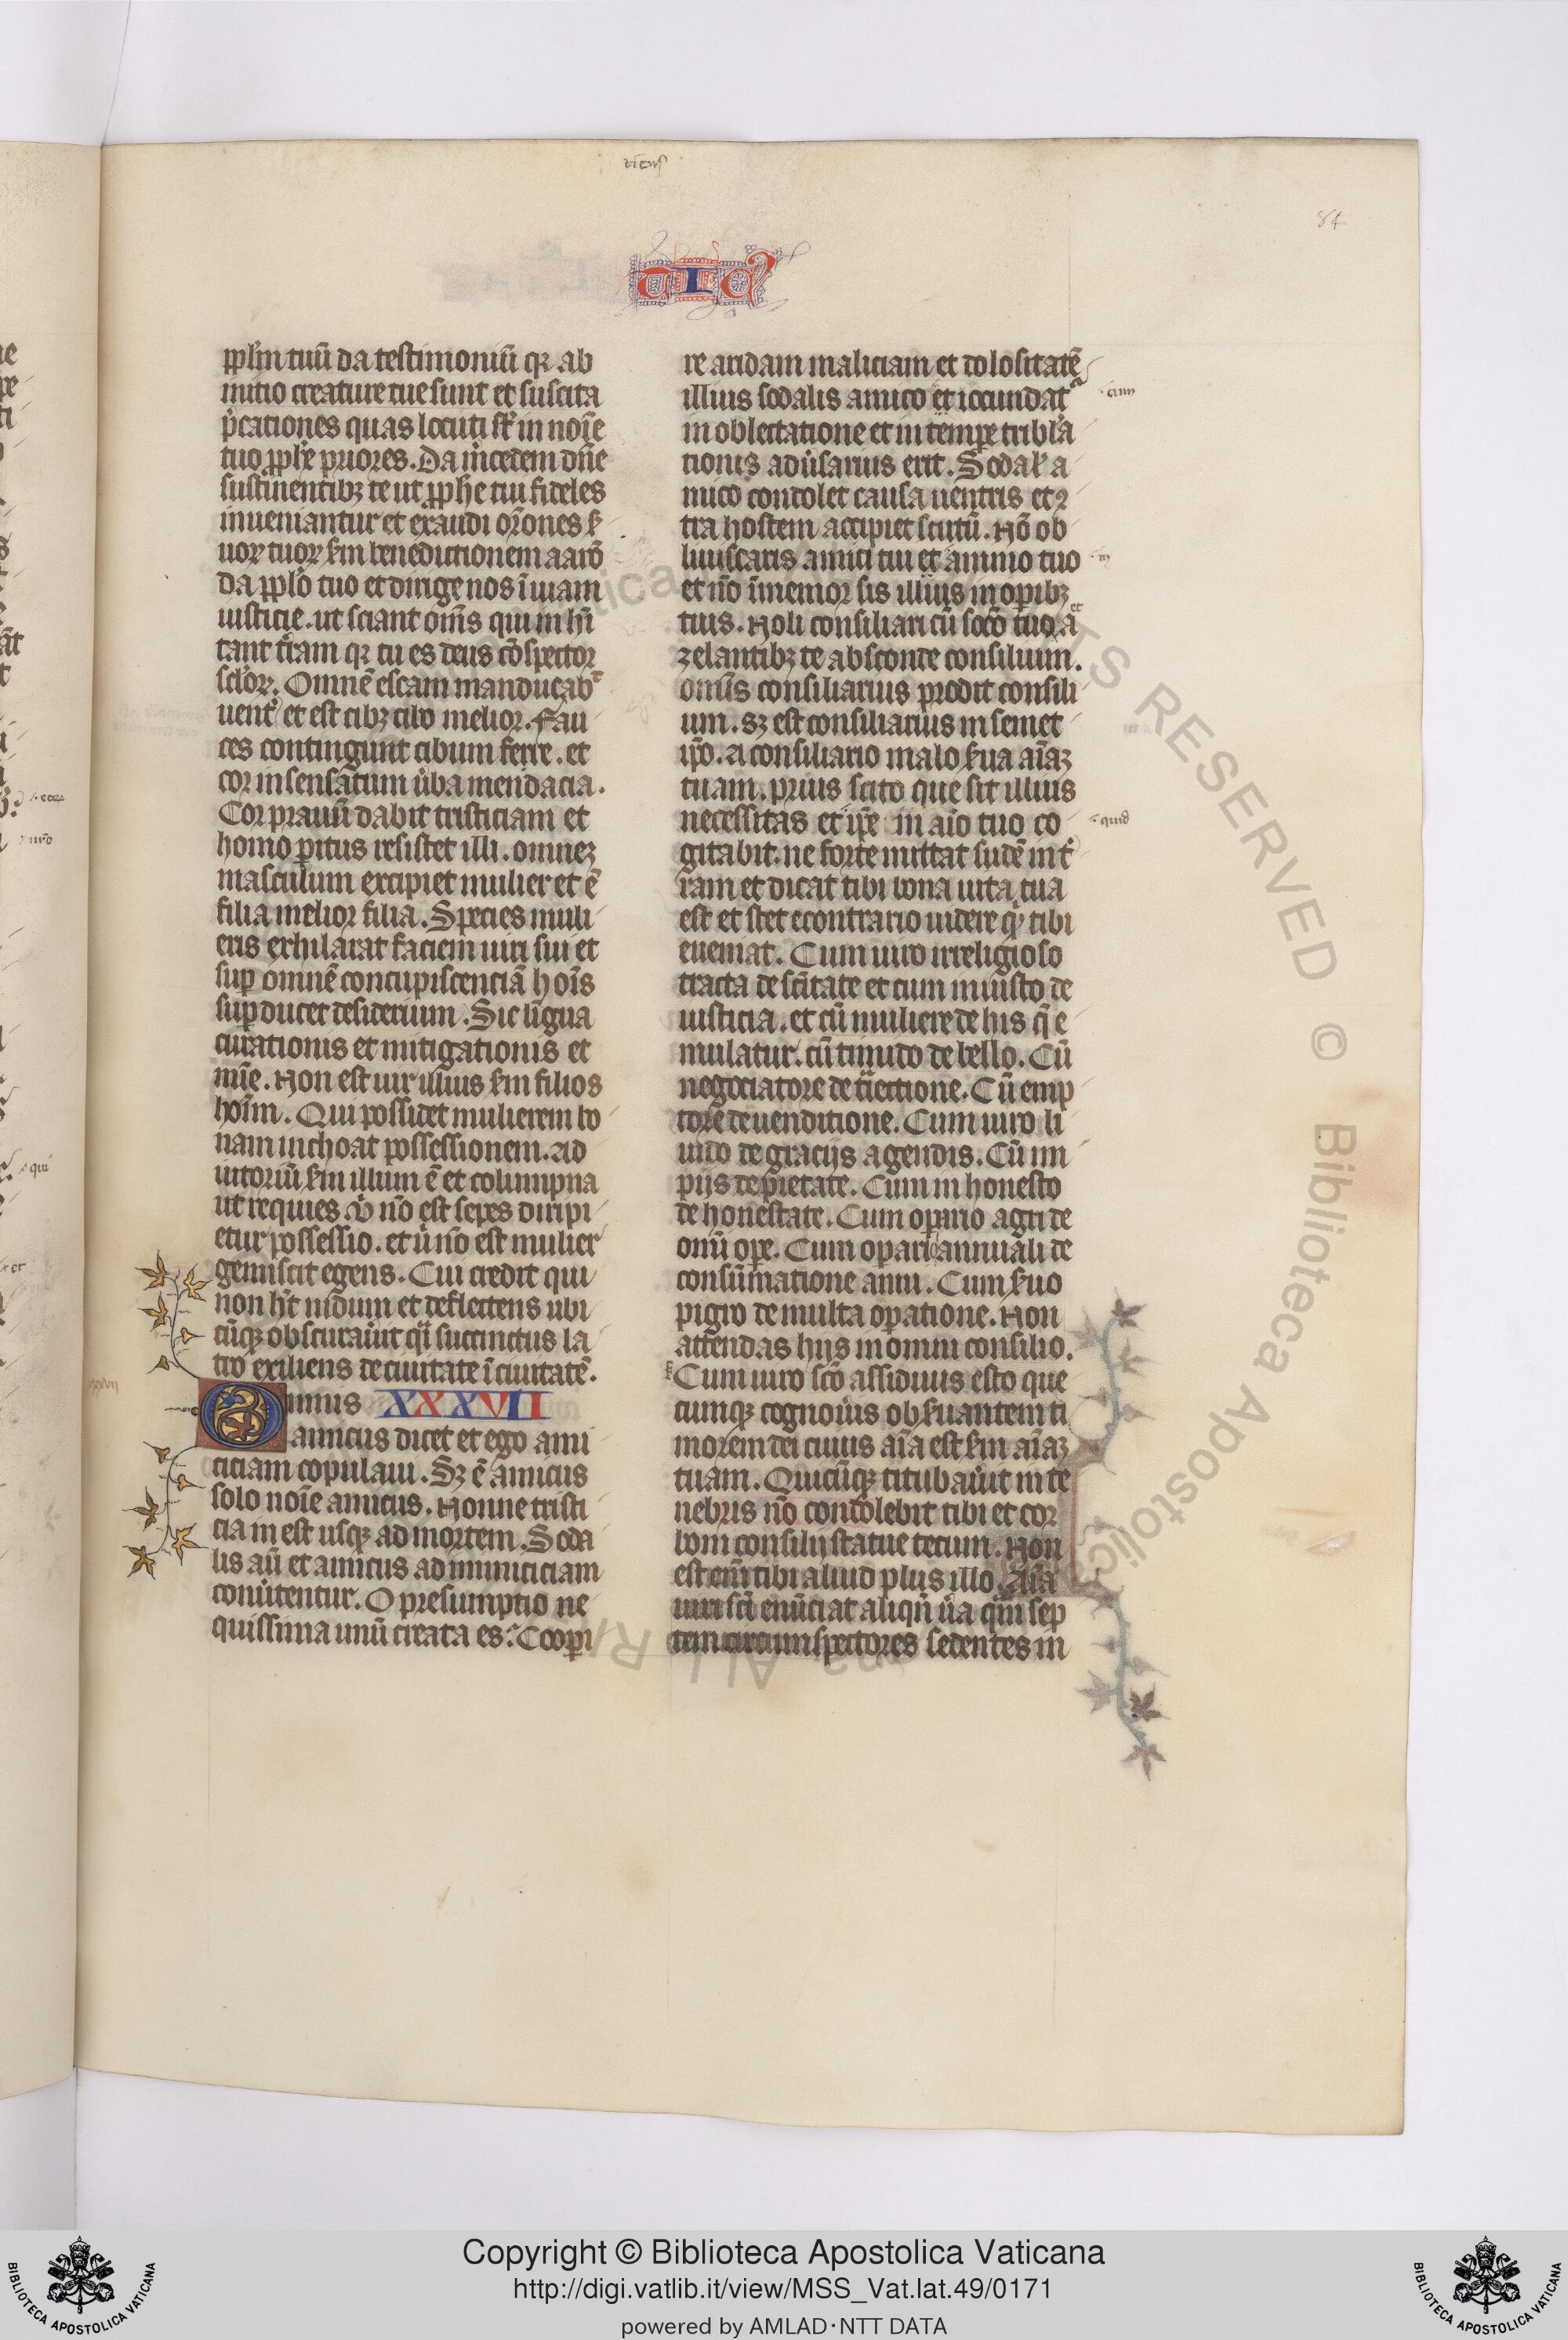 ticus
84
TIC
pplm tuū da testimoniū qꝛ ab
initio creature tue sunt et suscita
p̄cationes quas locuti st̄ in noīe
tuo ꝓph̄e priores. Da m̄cedem dn̄e
sustinentibꝫ te ut ꝓphe tui fideles
inueniantur et exaudi or̄ones s̄
uoꝝ tuoꝝ sc̄m benedictionem aarō
da pplo tuo et dirige nos ī uiam
iusticie. ut sciant om̄s qui in hī
tant tr̄am qꝛ tu es deus cōspector
sclōꝝ. Omnē escam manducabᵗ
uent̄ et est cibꝫ cibo melior. Fau
ces contingunt cibum ferre. et
cor insensatum ūba mendacia.
Cor prauū dabit tristiciam et
homo peritus resistet illi. omneꝫ
masculum excipiet mulier et ē
filia melior filia. Species muli
eris exhilarat faciem uiri sui et
sup omnē concupiscenciā hoīs
supducet desiderium. Sic ligua
curationis et mitigationis et
mīe. Non est uir illius sc̄m filios
hoīm. Qui possidet mulierem bo
nam inchoat possessionem. ad
iutoriū sc̄m illum ē et columpna
ut requies. V̄ nō est sepes diripi
etur possessio. et ū nō est mulier
gemiscit egens. Cui credit qui
non h̄t nidum et deflectens ubi
cūqꝫ obscurau̇it qͣi succinctus la
tro exiliens de ciuitate ī ciuitatē.
Omnis XXXVII
amicus dicet et ego ami
ciciam copulaui. Sꝫ ē amicus
solo noīe amicus. Nonne tristi
cia in est usqꝫ ad mortem. Soda
lis aū et amicus ad inimiciciam
conu̇tentur. O presumptio ne
quissima unū creata es: Coopi
re aridam maliciam et dolositatē
illius sodalis amico et iocundatᵃ
·cum
in oblectatione et in tempe tribla
tionis adu̇sarius erit. Sodal̄ a
mico condolet causa uentris et ꝯ
tra hostem accipiet scutū. Nō ob
liuiscaris amici tui et animo tuo
·in
et nō īmemor sis illius in opibꝫ
tuis. Noli consiliari cū soco tuo et a
zelantibꝫ te absconde consilium.
omīs consiliarius prodit consili
um. sꝫ est consiliarius in semet
ip̄o. A consiliario malo s̄ua aīaꝫ
tuam. prius scito que sit illius
necessitas et ip̄e in aīo tuo co
·quid
gitabit. ne forte mittat sudē in t̄
ram et dicat tibi bona uita tua
est et stet econtrario uidere qͥd tibi
eueniat. Cum uiro irreligioso
tracta de sc̄itate et cum iniusto de
iusticia. et cū muliere de his q̄ e
mulatur. cū timido de bello. Cū
negociatore de tͣiectione. Cū emp
tore de uenditione. Cum uiro li
uido de gracijs agendis. Cū im
pijs de pietate. Cum in honesto
de honestate. Cum opario agri de
omī ope. Cum opario annuali de
consūmatione anni. Cum s̄uo
pigro de multa opatione. Non
attendas hijs in omni consilio.
Cum uiro sc̄o assiduus esto que
cumqꝫ cognou̇is obs̄uantem ti
morem dei cuius aīa est sc̄m aīaꝫ
tuam. Quicūqꝫ titubau̇it in te
nebris nō condolebit tibi et cor
boni consilij statue tecum. Non
est enī tibi aliud plus illo. Aīa
uiri sc̄i enūciat aliqn̄ u̇a qͣm sep
tem circumspectores sedentes in
Copyright © Biblioteca Apostolica Vaticana
http://digi.vatlib.it/view/MSS_Vat.lat.49/0171
powered by AMLAD·NTT DATA